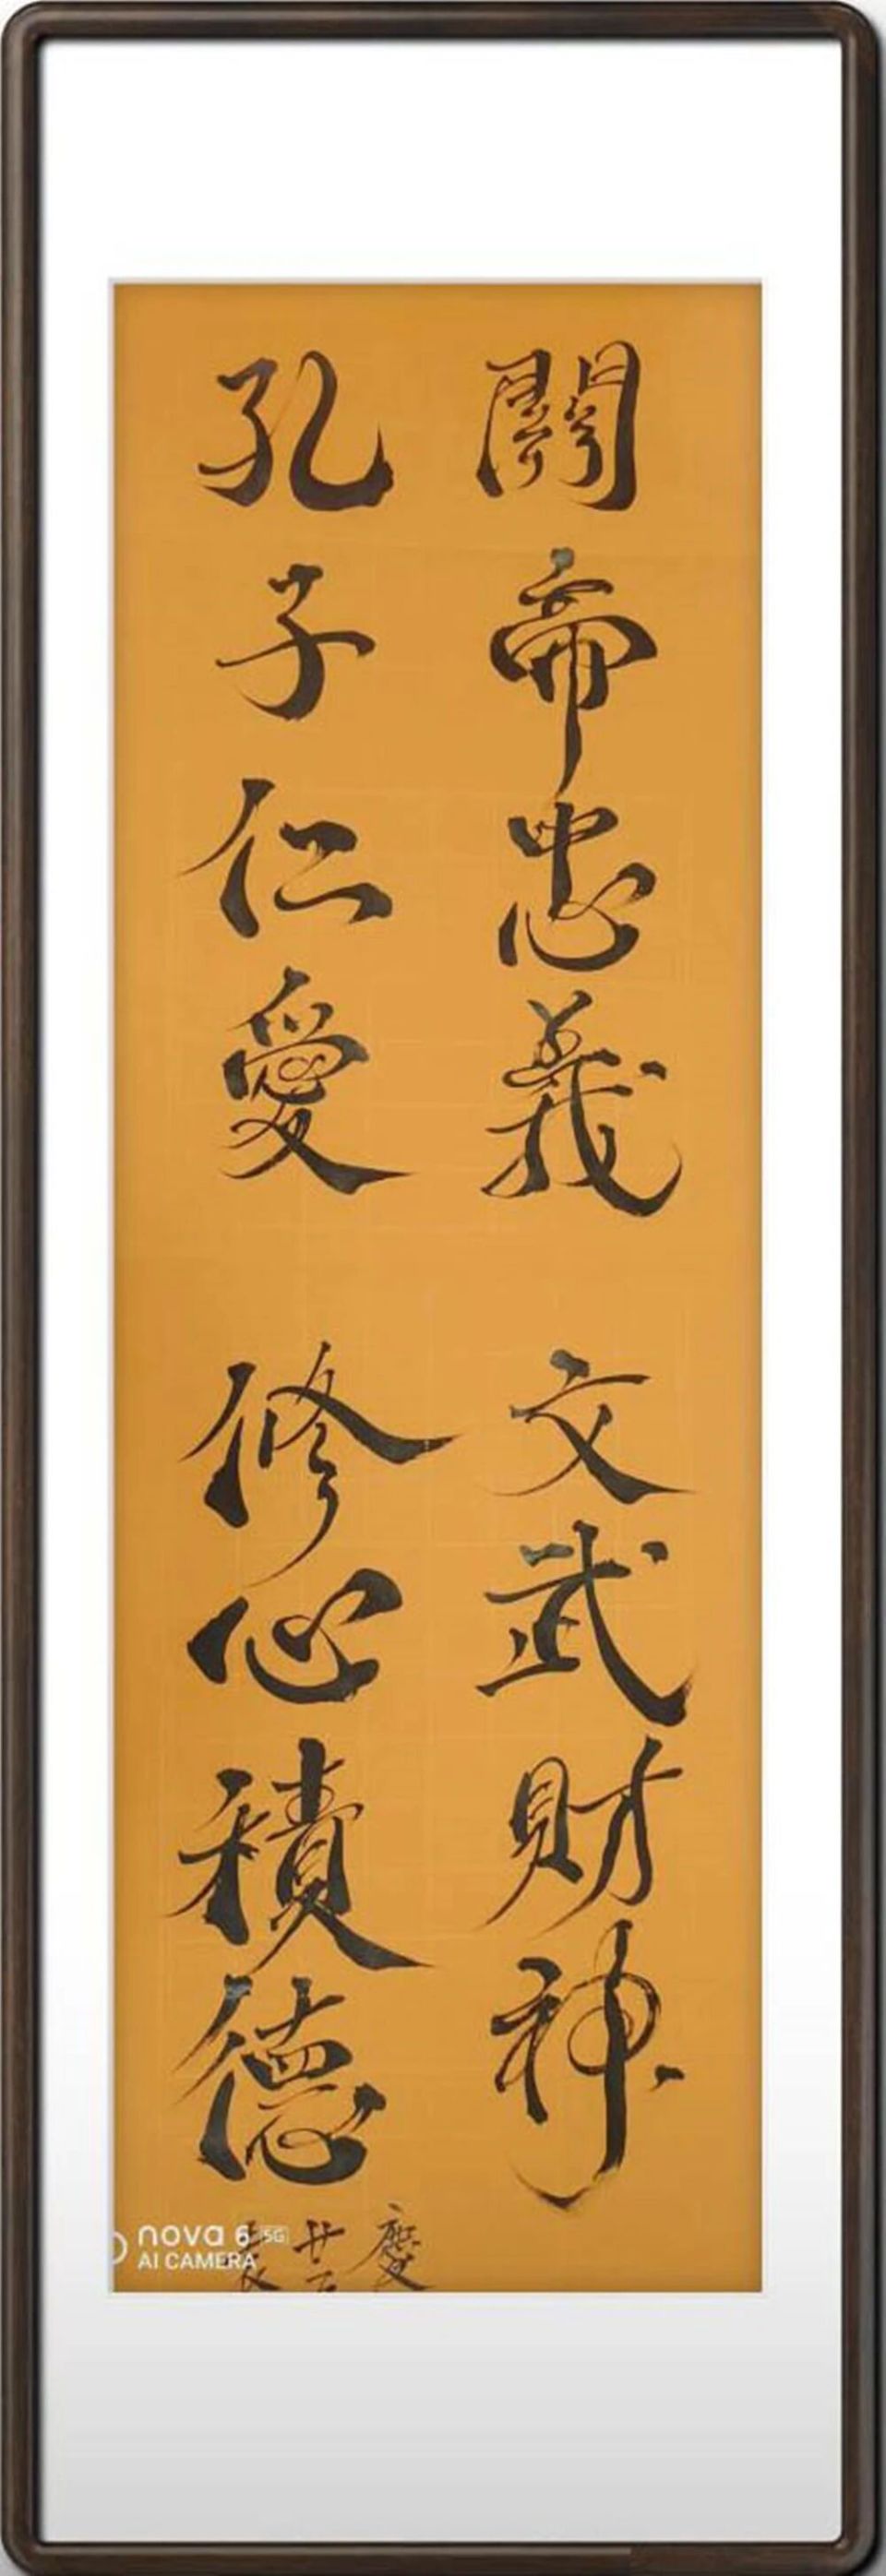 關帝忠義 文武財神
孔子仁愛 修心積德
慶
廿五
nova 6 5G
AI CAMERA